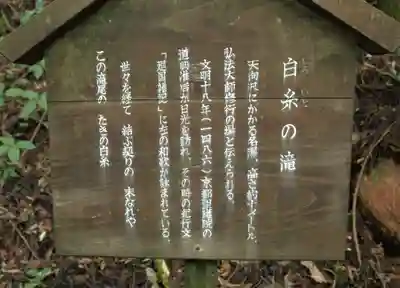 白糸の滝
しら いと
天向沢にかかる名瀑、高さ約十メートル。
弘法大師修行の場と伝えられる。
文明十八年(一四八六)京都聖護院の
道興准后が日光を訪れ、その時の紀行文
「廻国雑記」に左の和歌が詠まれている。
世々を経て 結ぶ契りの 末なれや
この滝尾の たきの白糸